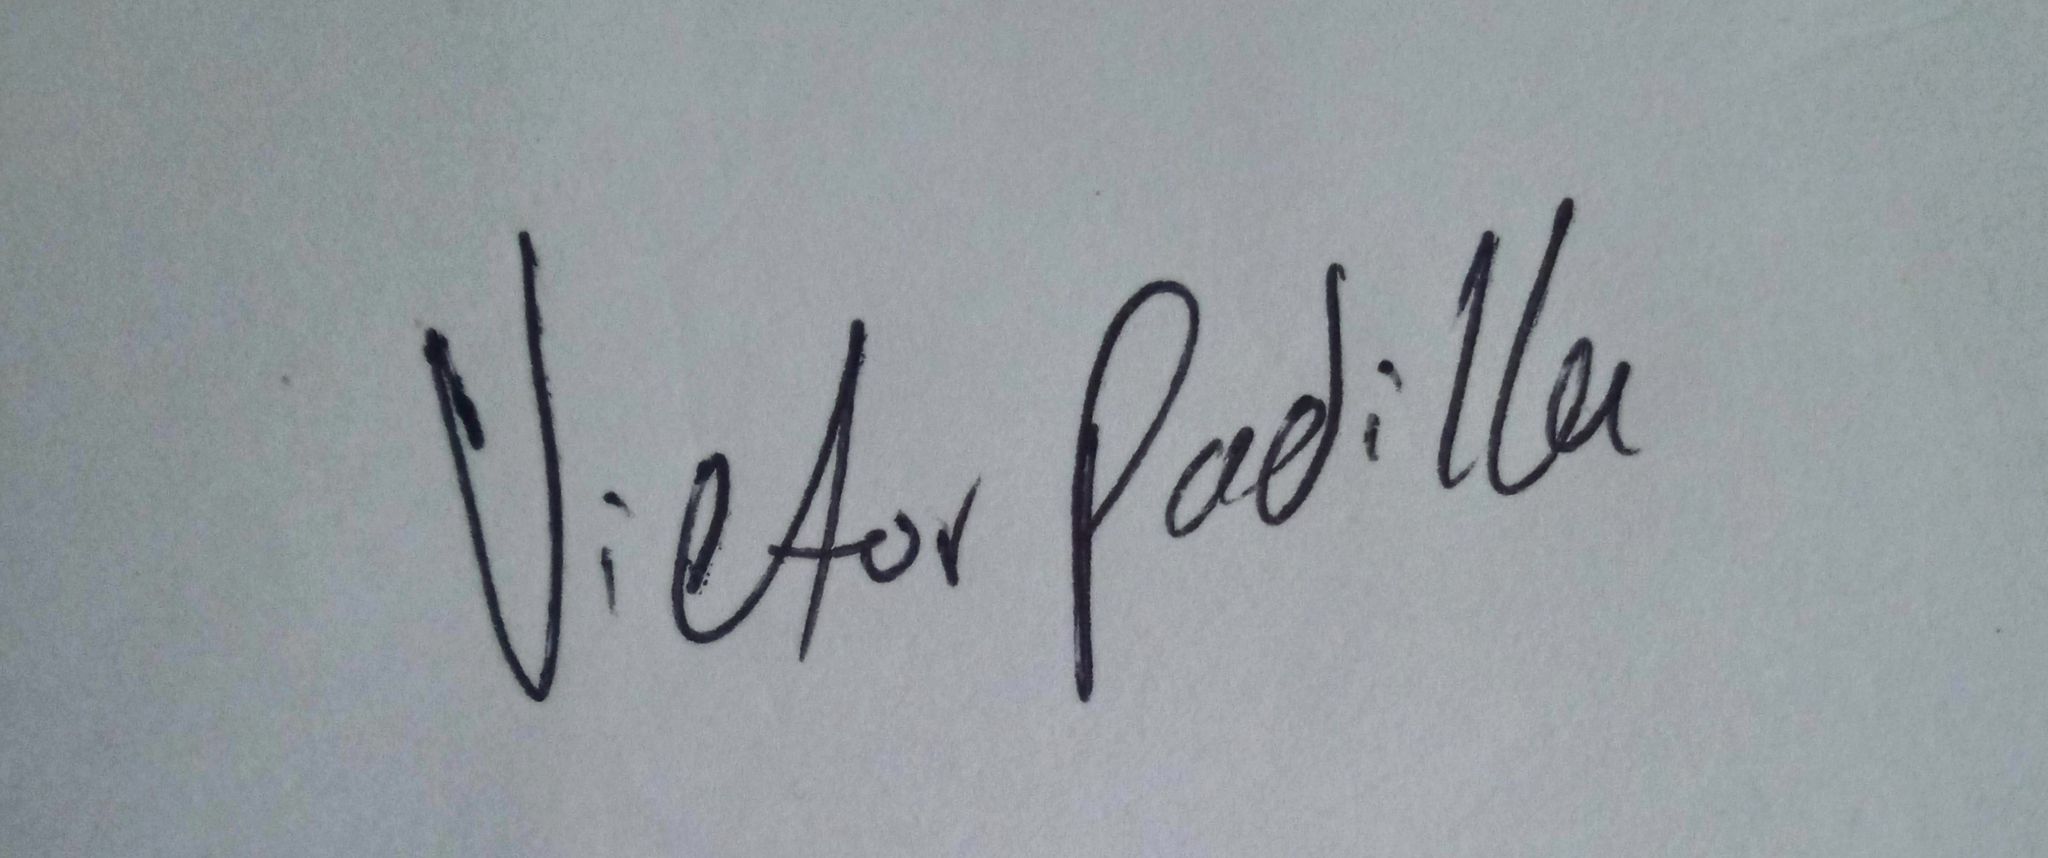 Victor Padilla